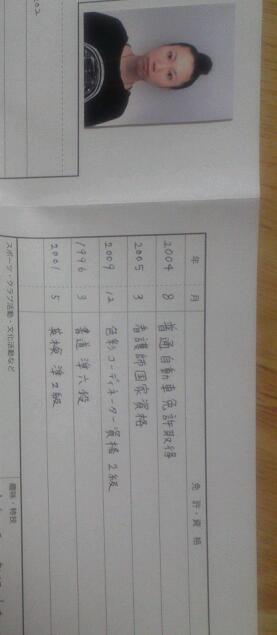 年 月 免許・資格
2004 8 普通自動車免許取得
2005 3 看護師国家資格
2009 12 色彩コーディネーター資格 2級
1996 3 書道 準六段
2001 5 英検 準2級
スポーツ・クラブ活動・文化活動など 趣味・特技